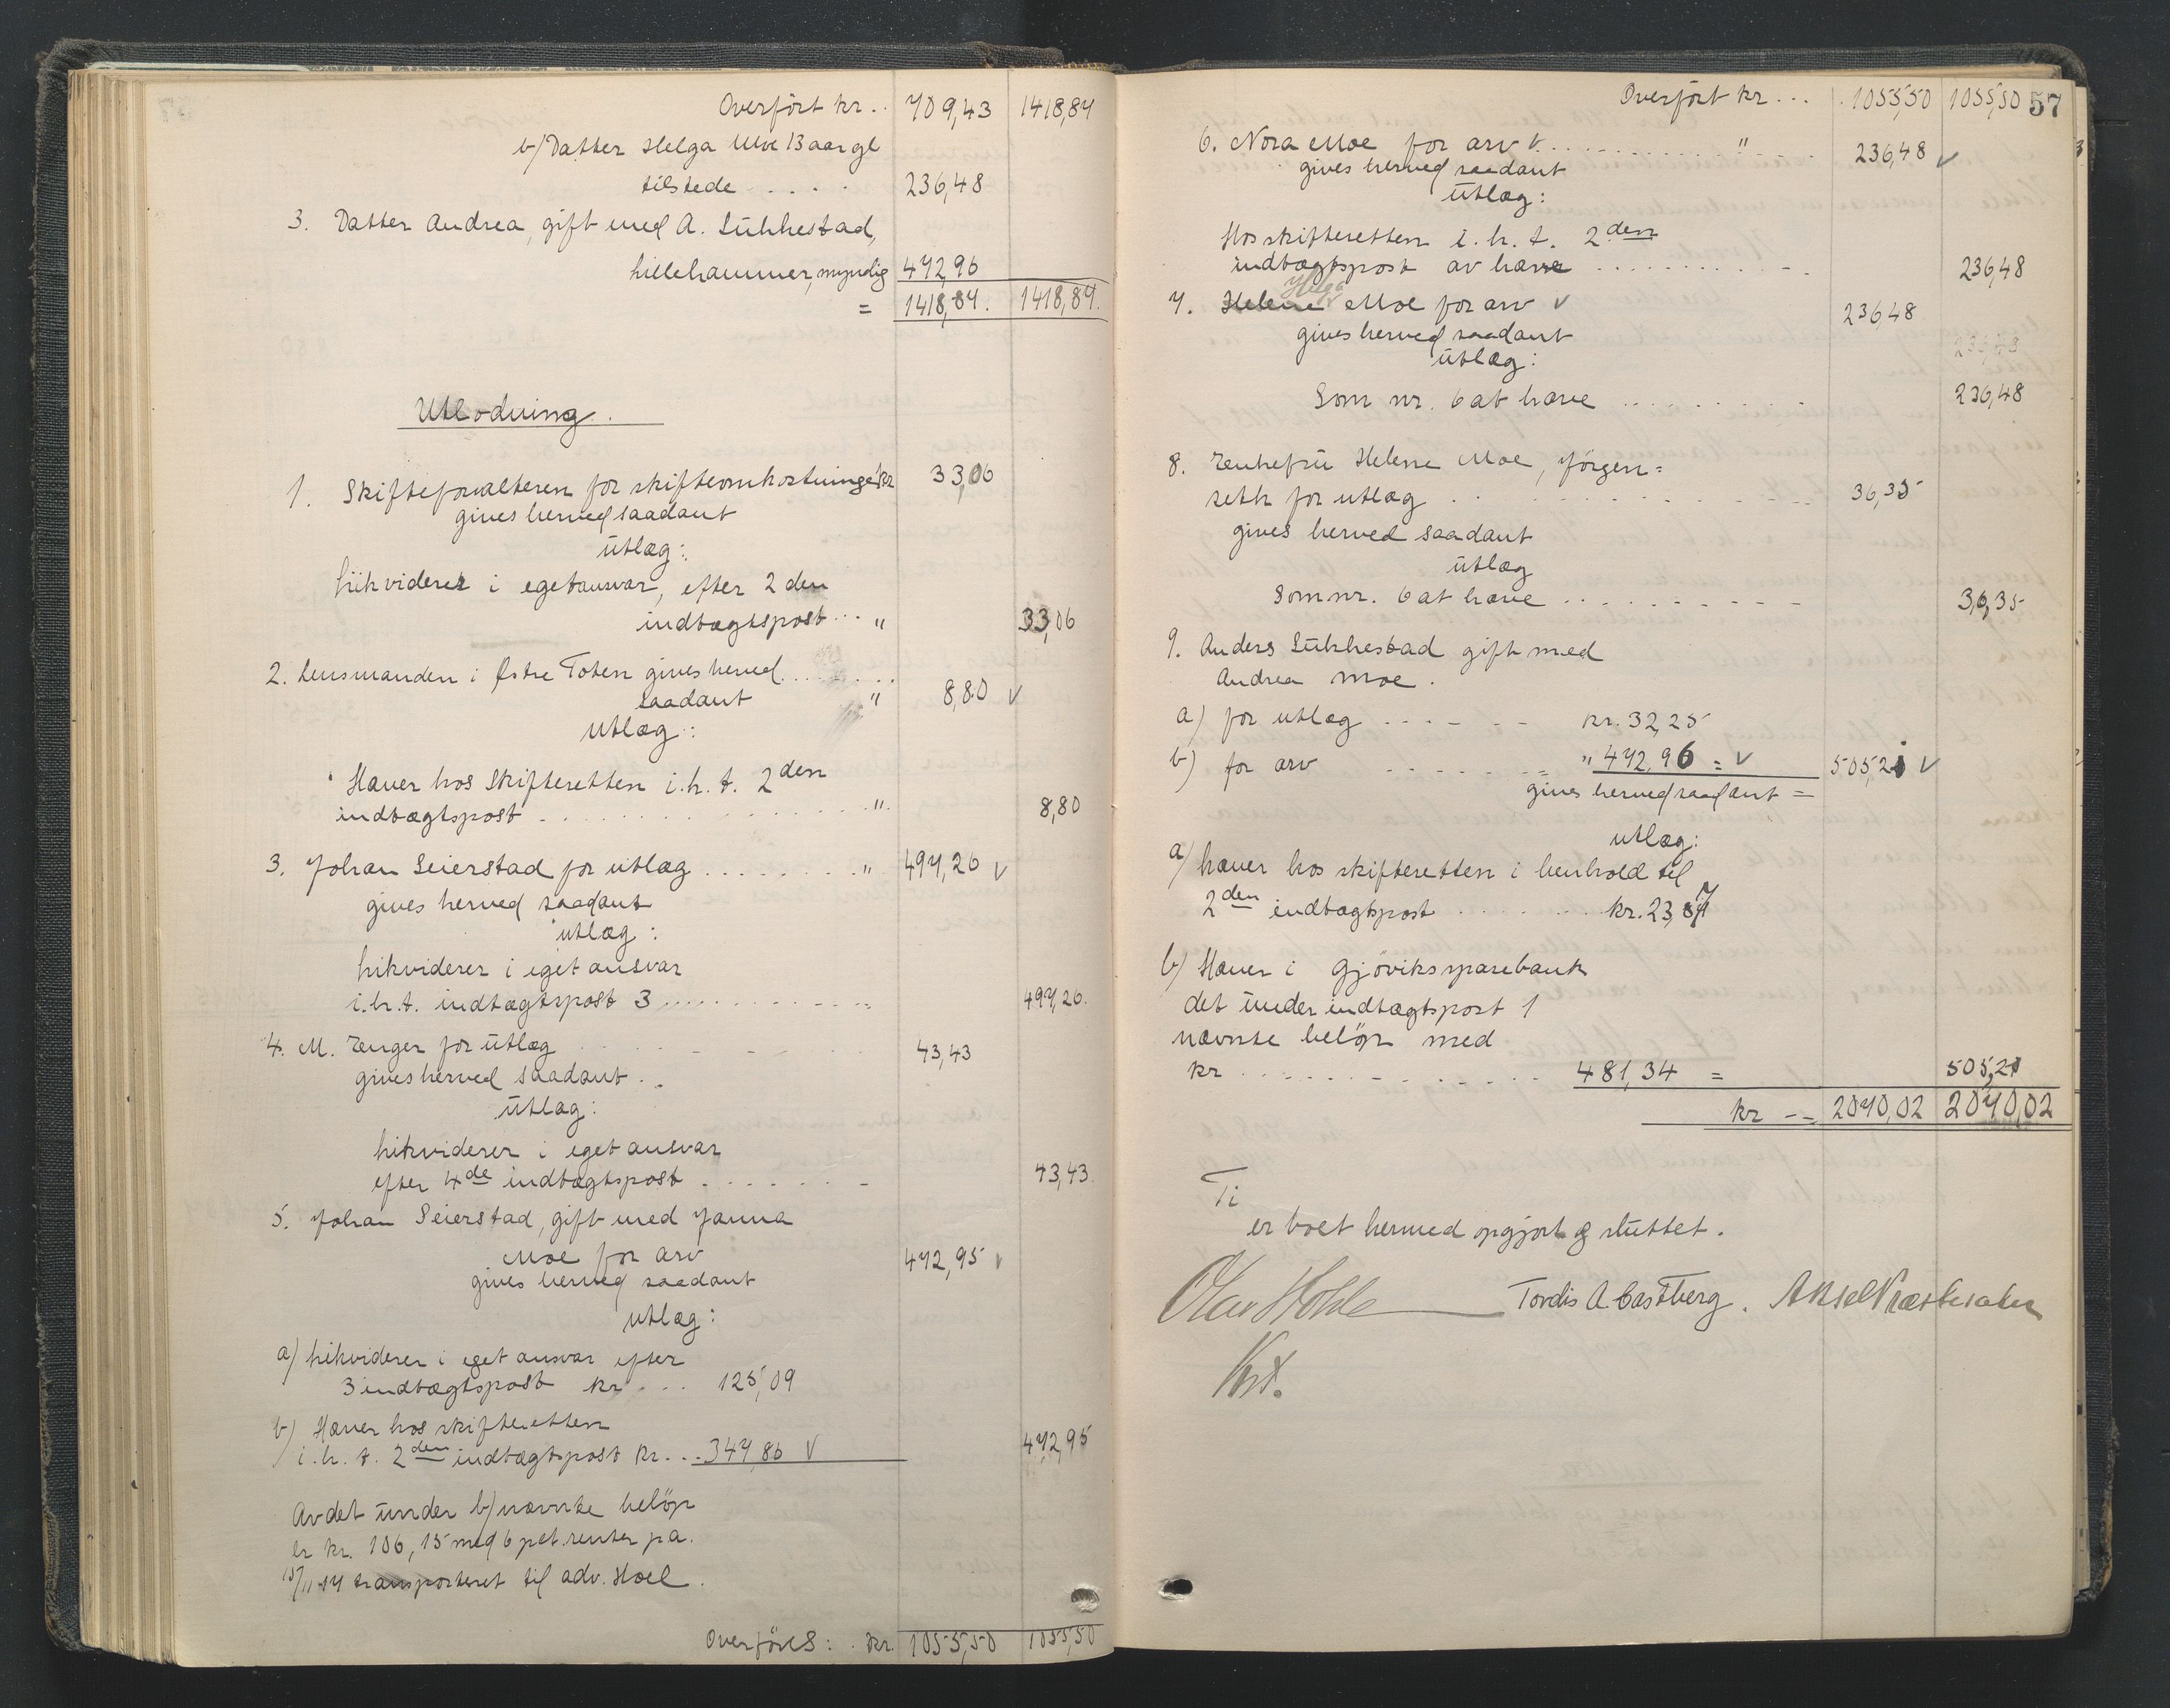 Overført kr.. 709,43 1418,84
b) Datter Helga Moe 13 aar gl
tilstede . . . . 236,48
3. Datter Andrea, gift med A. Lukkestad,
Lillehammer, myndig 472,96
= 1418,84. 1418,84.
Utlodning.
1. Skifteforvalteren for skifteomkostninger kr 33,06
gives herved saadant
utlæg:
Likviderer i eget ansvar, efter 2den
indtægtspost... " 33,06
2. Lensmanden i Østre Toten gives herved . . . .
saadant " 8,80 v
utlæg:
Hæver hos Skifteretten i.h.t. 2den
indtægtspost . . . . . " 8,80
3. Johan Seierstad for utlæg . . . . . . . . " 497,26 v
gives herved saadant
utlæg:
Likviderer i eget ansvar
i.h.t. indtægtspost 3 . . . . . . . 497,26.
4. M. Zenger for utlæg . . . . 43,43
gives herved saadant . .
utlæg:
Likviderer i eget ansvar
efter 4de indtægtspost . . . . . . 43,43.
5. Johan Seierstad, gift med Janna
Moe for arv 472,95 v
gives herved saadant
utlæg:
a) Likviderer i eget ansvar efter
3 indtægtspost kr . . . 125,09
b) Hæver hos skifteretten
i.h.t. 2den indtægtspost kr. . . 347,86 v 472,95
Av det under b) nævnte beløp
er kr. 106,15 med 6 pct. renter p a.
15/11-14 transporteret til adv. Hoel.
Overføres: . kr. 1055,50 1055,50
Overført kr . . . 1055,50 1055,50 57
6. Nora Moe for arv v. . . . . . . . . . . " . . . 236,48 v
gives herved saadant
utlæg:
Hos skifteretten i.h.t. 2den
indtægtspost av hæve . . . . . . . . . . 236,48
Helga
7. Helene Moe for arv v 236,48
gives herved saadant
utlæg: 236,48
Som nr. 6 at hæve . . . . . . . . . 236,48
8. Enkefru Helene Moe, Jörgen=
seth for utlæg . . . . . . . . . 36,35
gives herved saadant
utlæg
Som nr. 6 at hæve . . . . . . . . . 36,35
9. Anders Lukkestad gift med
Andrea Moe.
a) for utlæg . . . . . . kr. 32,25
b) for arv . . . . . . . " 472,96 = v 505,21 v
gives herved saadant =
utlæg:
a) hæver hos skifteretten i henhold til
2den indtægtspost . . . . . . . kr. 23,87
b) Hæver i Gjøviks sparebank
det under indtægtspost 1
nævnte beløp med
kr . . . . . . . . . . . . . . . 481,34 = 505,21
kr -- 2070,02 2070,02
Ti
er boet hermed opgjort og sluttet.
Tordis A Castberg. Aksel Kræstesaler
Kst.